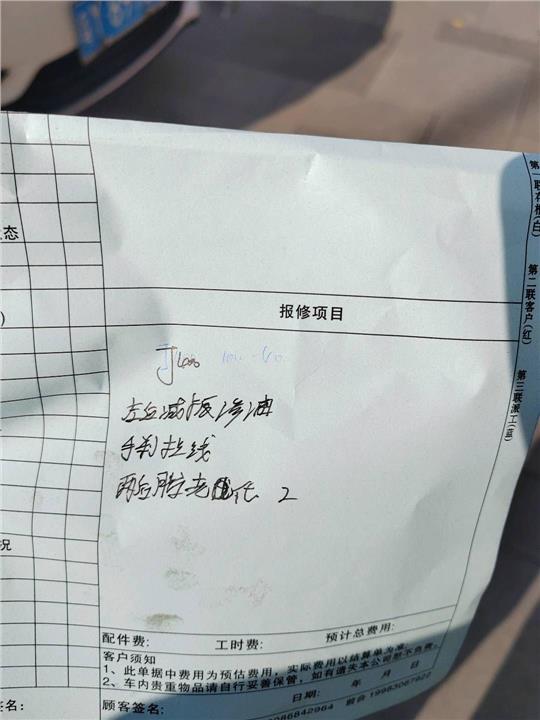 态
报修项目
第二联客户(红)
第三联派工(蓝)
左后减振渗油
手刹拉线
两后胎老化 2
况
配件费: 工时费: 预计总费用:
客户须知
1、此单据中费用为预估费用，实际费用以结算单为准。
2、车内贵重物品请自行妥善保管，如有遗失本公司恕不负责。
日期: 年 月 日
签名: 顾客签名: